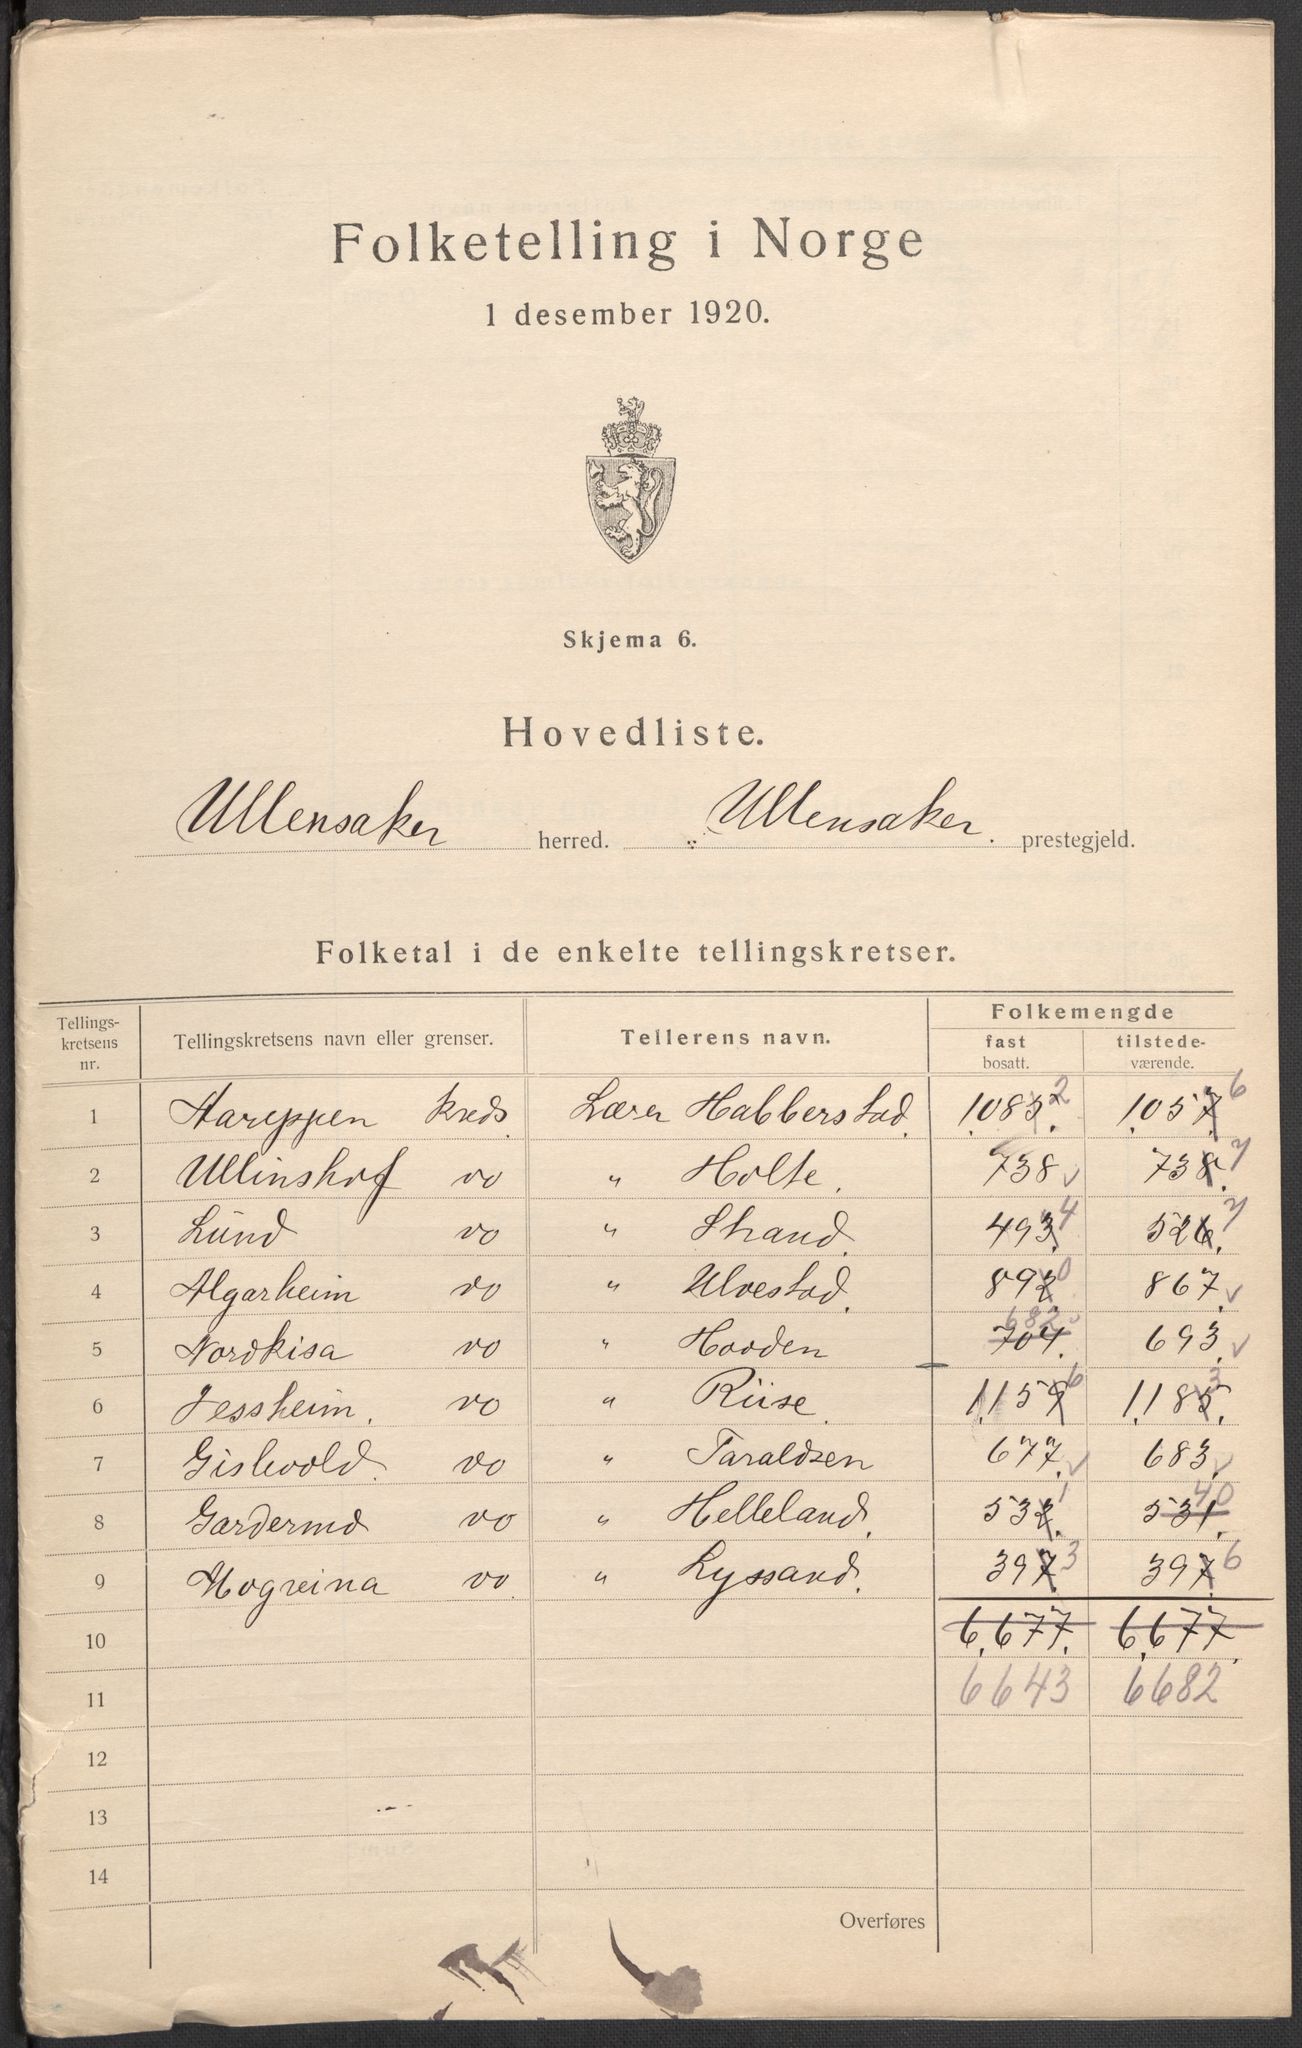 Folketelling i Norge
1 desember 1920.
Skjema 6.
Hovedliste.
Ullensaker herred. Ullensaker. prestegjeld.
Folketal i de enkelte tellingskretser.
Tellings-
kretsens
nr.
Tellingskretsens navn eller grenser.
Tellerens navn.
Folkemengde
fast
bosatt.
tilstede-
værende.
1 kreds. Lærer Habberstad. 1.085. 2 1.057. 6
2 Ullinshof do " Holte. 738 v 738. 7
3 Lund do " Strand. 493. 4 526. 7
4 Algarheim do " Ulvestad. 892. 0 867. v
5 Nordkisa do " Hovden 704. 682 v 693. v
6 Jessheim. do " Riise. 1.159 6 1.185. 3
7 Gislevold. do " Taraldsen 677. v 683. v
8 Gardermo do " Helleland. 532. 1 531. 40
9 Mogreina do " Lyssand. 397. 3 397. 6
10 6.677. 6.677.
11 6643 6682
12
13
14
Overføres